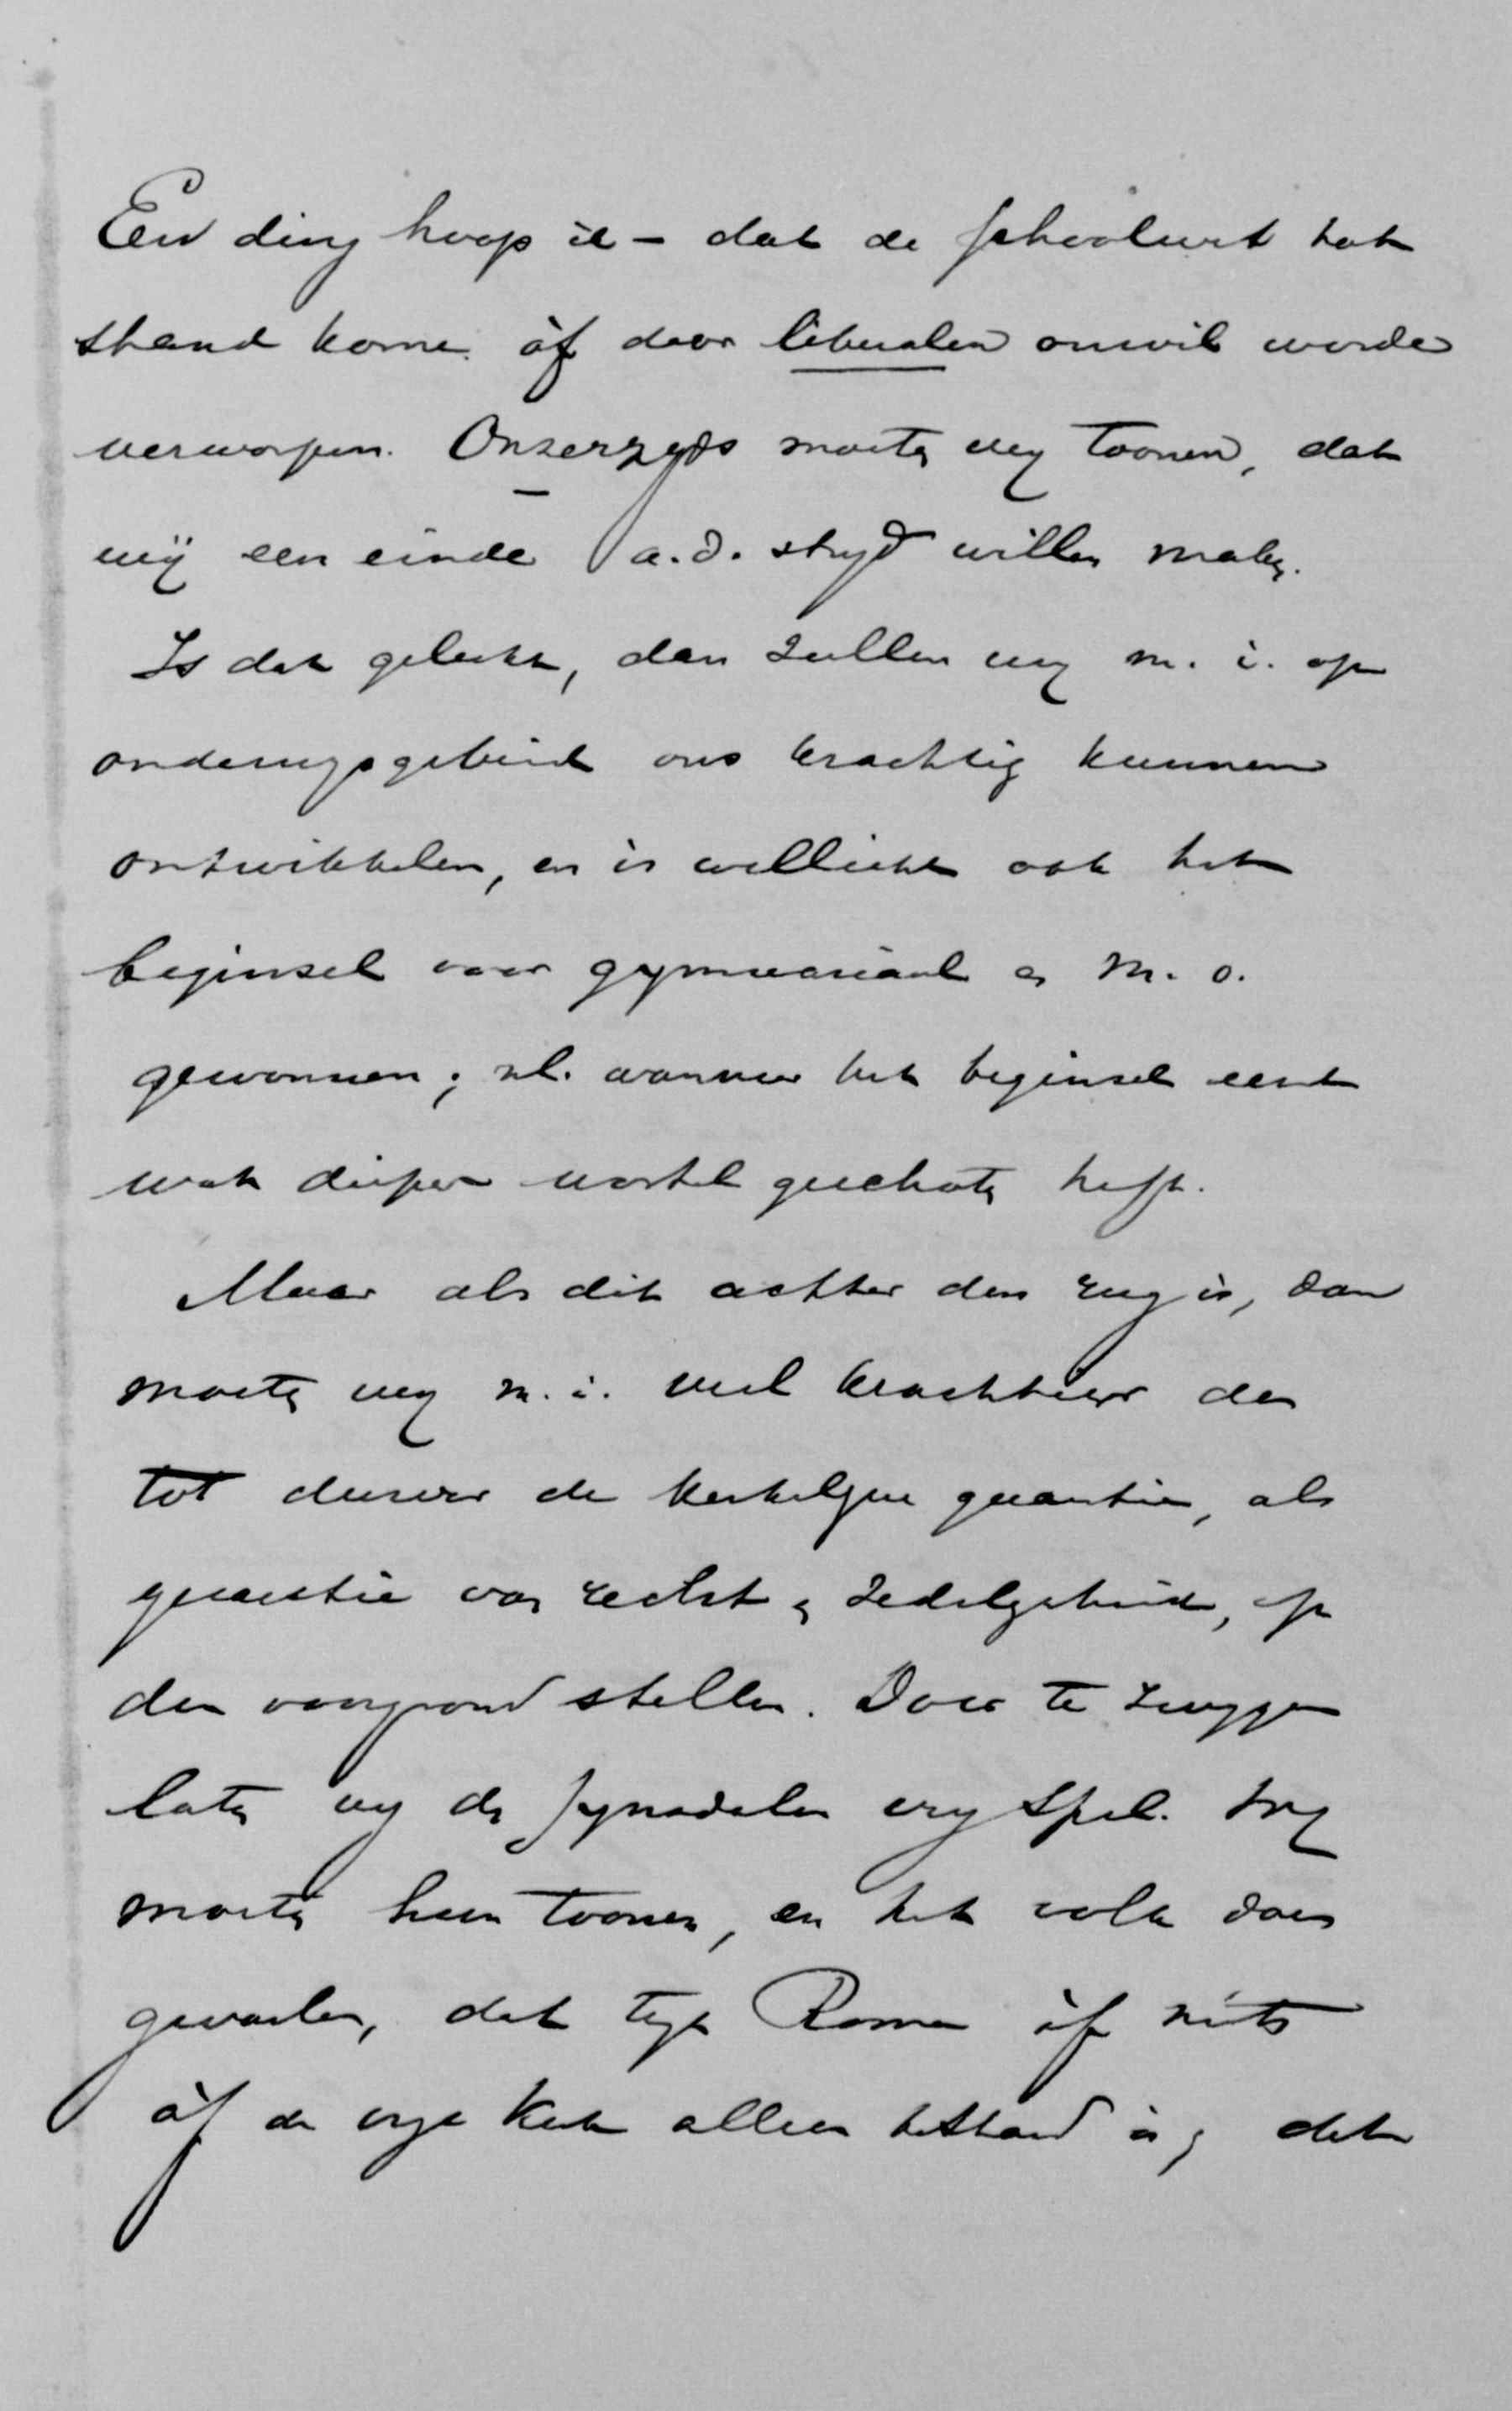 Een ding hoop ik – dat de schoolwet tot
stand kome òf door liberalen onwil worde
verworpen. Onzerzyds moeten wy toonen, dat
wij een einde a.d. stryd willen maken.
Is dat gelukt, dan zullen wy m. i. op
onderwysgebied ons krachtig kunnen
ontwikkelen, en is wellicht ook het
beginsel voor gymnasiaal en m. o.
gewonnen; nl. wanneer het beginsel eerst
wat dieper wortel geschoten heeft.
Maar als dit achter den rug is, dan
moeten wy m. i. veel krachtiger dan
tot dusver de kerkelyke quaestie, als
quaestie van recht en zedelykheid, op
den voorgrond stellen. Door te zwygen
laten wy de Synodalen vry spel. Wy
moeten hun toonen, en het volk doen
gevoelen, dat tegen Rome òf niets
òf de vrye Kerk alleen bestand is; dat